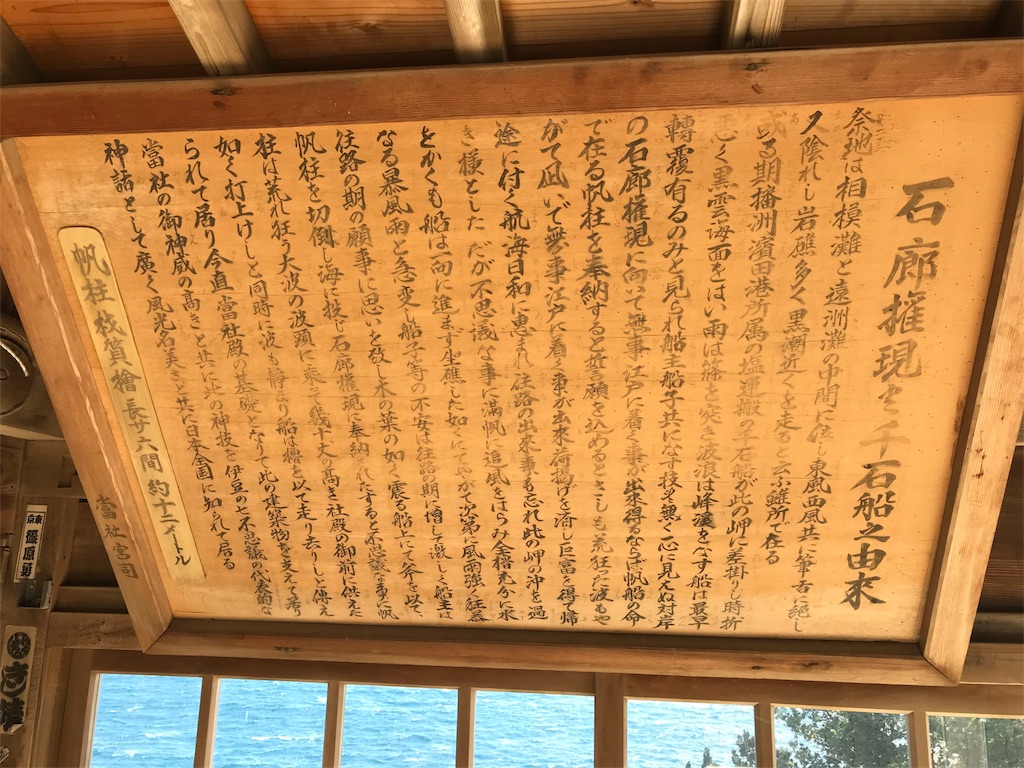 石廊権現と千石船之由来
参地は相模灘と遠洲灘の中間に位し東風西風共に筆舌に絶し
又陰れし岩礁多く黒潮近くを走ると云ふ難所で在る
或る期播洲濱田港所属の塩運搬の千石船が此の岬に差掛りし時折
悪しく黒雲海面をはい雨は篠を突き波浪は峰渓をなす船は最早
轉覆有るのみと見られ船主船子共になす技も無く一心に見えぬ対岸
の石廊権現に向って無事江戸に着く事が出来得るならば帆船の命
で在る帆柱を奉納すると誓願を込めるとさしも荒狂た波もや
がて凪いで無事江戸に着く事が出来荷揚げを済し巨富を得て帰
途に付く航海日和に恵まれ往路の出来事も忘れ此の岬の沖を過
き様とした だが不思議な事に満帆に追風をはらみ全櫓充分に水
をかくも船は一向に進ます坐礁した如しにてやがて次第に風雨強く狂暴
なる暴風雨と急変し船子等の不安は往路の期に増して激しく船主は
往路の期の願事に思いを致し木の葉の如く震る船上にて斧をふい
帆柱を切倒し海に投じ石廊権現に奉納られたすると不思議な事に帆
柱は荒れ狂う大波の波頭に乗て幾十丈の高き社殿の御前に供えた
如く打上げしと同時に波も静まり船は櫓を以て走り去りしと傳え
られて居り今直當社殿の基礎となりて此の建築物を支えて居り
當社の御神威の高さと共に此の神技を伊豆の七不思議の代表的な
神話として廣く風光名美さと共に日本全国に知られて居る
帆柱材質檜 長サ六間 約十二メートル
當社宮司
東京